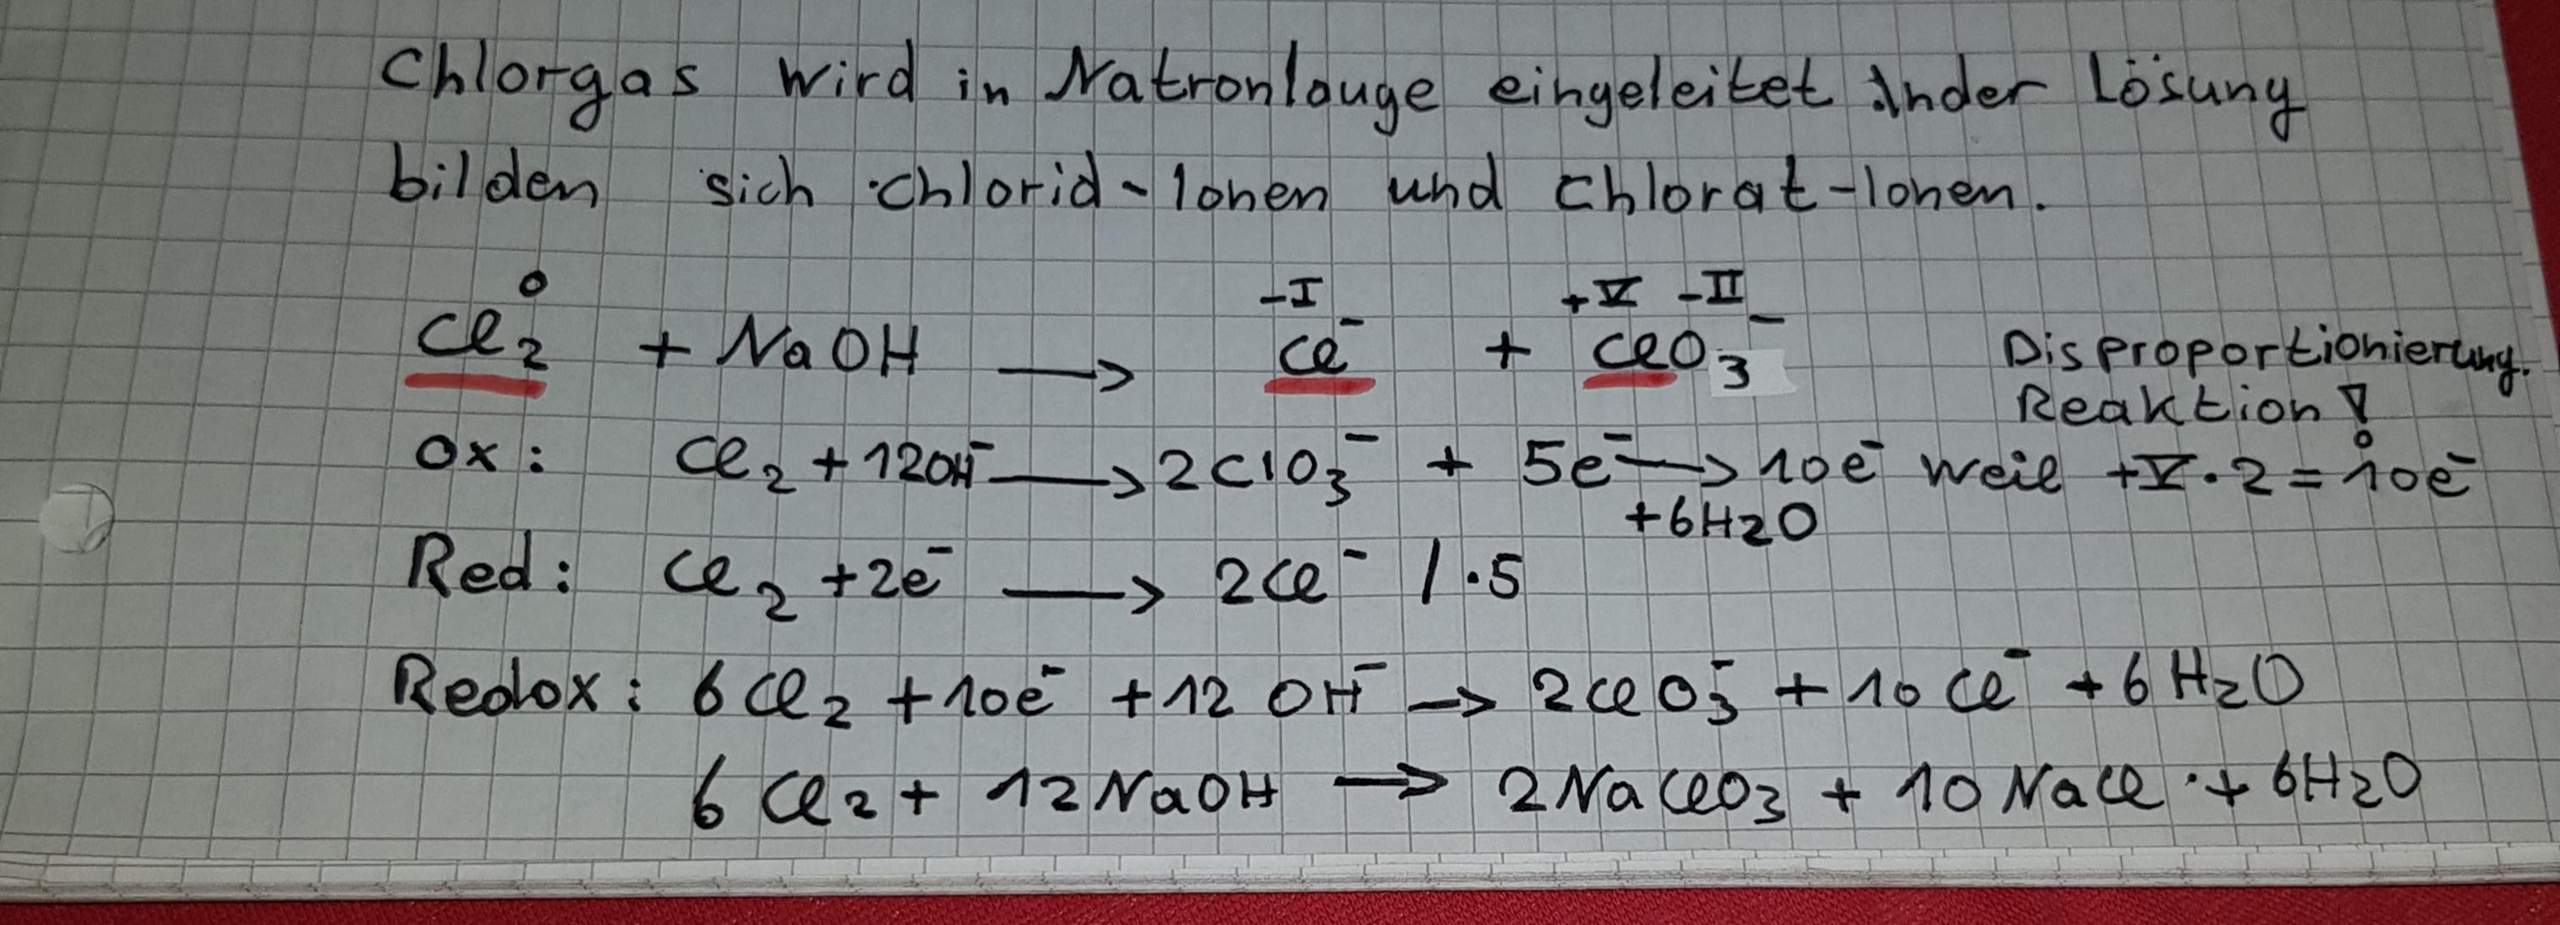 Chlorgas wird in Natronlauge eingeleitet In der Lösung
bilden sich Chlorid-Ionen und Chlorat-Ionen.
0 -I +V -II
Cl2 + NaOH → Cl⁻ + ClO3⁻ Disproportionierung.
Reaktion!
Ox: Cl2 + 12OH⁻ → 2ClO3⁻ + 5e⁻ → 10e⁻ weil +V·2 = 10e⁻
+6H2O
Red: Cl2 + 2e⁻ → 2Cl⁻ /·5
Redox: 6Cl2 + 10e⁻ + 12 OH⁻ → 2ClO3⁻ + 10Cl⁻ + 6H2O
6Cl2 + 12NaOH → 2NaClO3 + 10NaCl + 6H2O